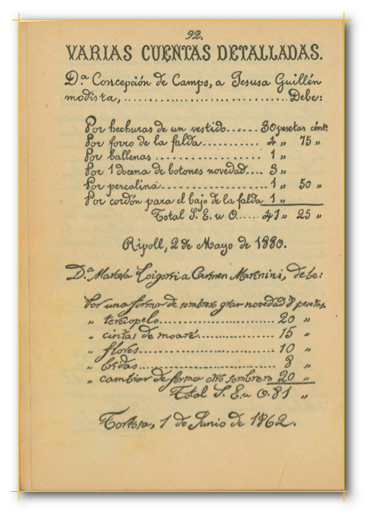 92.
VARIAS CUENTAS DETALLADAS.
D.ª Concepción de Camps, a Jesusa Guillén
modista,.......................................Debe:
Por hechuras de un vestido......30 pesetas cént.
Por forro de la falda............4 „ 75 „
Por ballenas.....................1 „
Por 1 docena de botones novedad...3 „
Por percalina....................1 „ 50 „
Por cordón para el bajo de la falda 1 „
Total S. E. u O.....41 „ 25 „
Ripoll, 2 de Mayo de 1880.
D.ª a Carmen debe:
Por una forma de sombrero gran novedad 8 pesetas
„ terciopelo....................20 „
„ cintas de moaré...............15 „
„ flores........................10 „
„ bridas........................8 „
„ cambiar de forma sombrero 20 „
Total S. E. u O. 81 „
Tortosa, 1 de Junio de 1862.